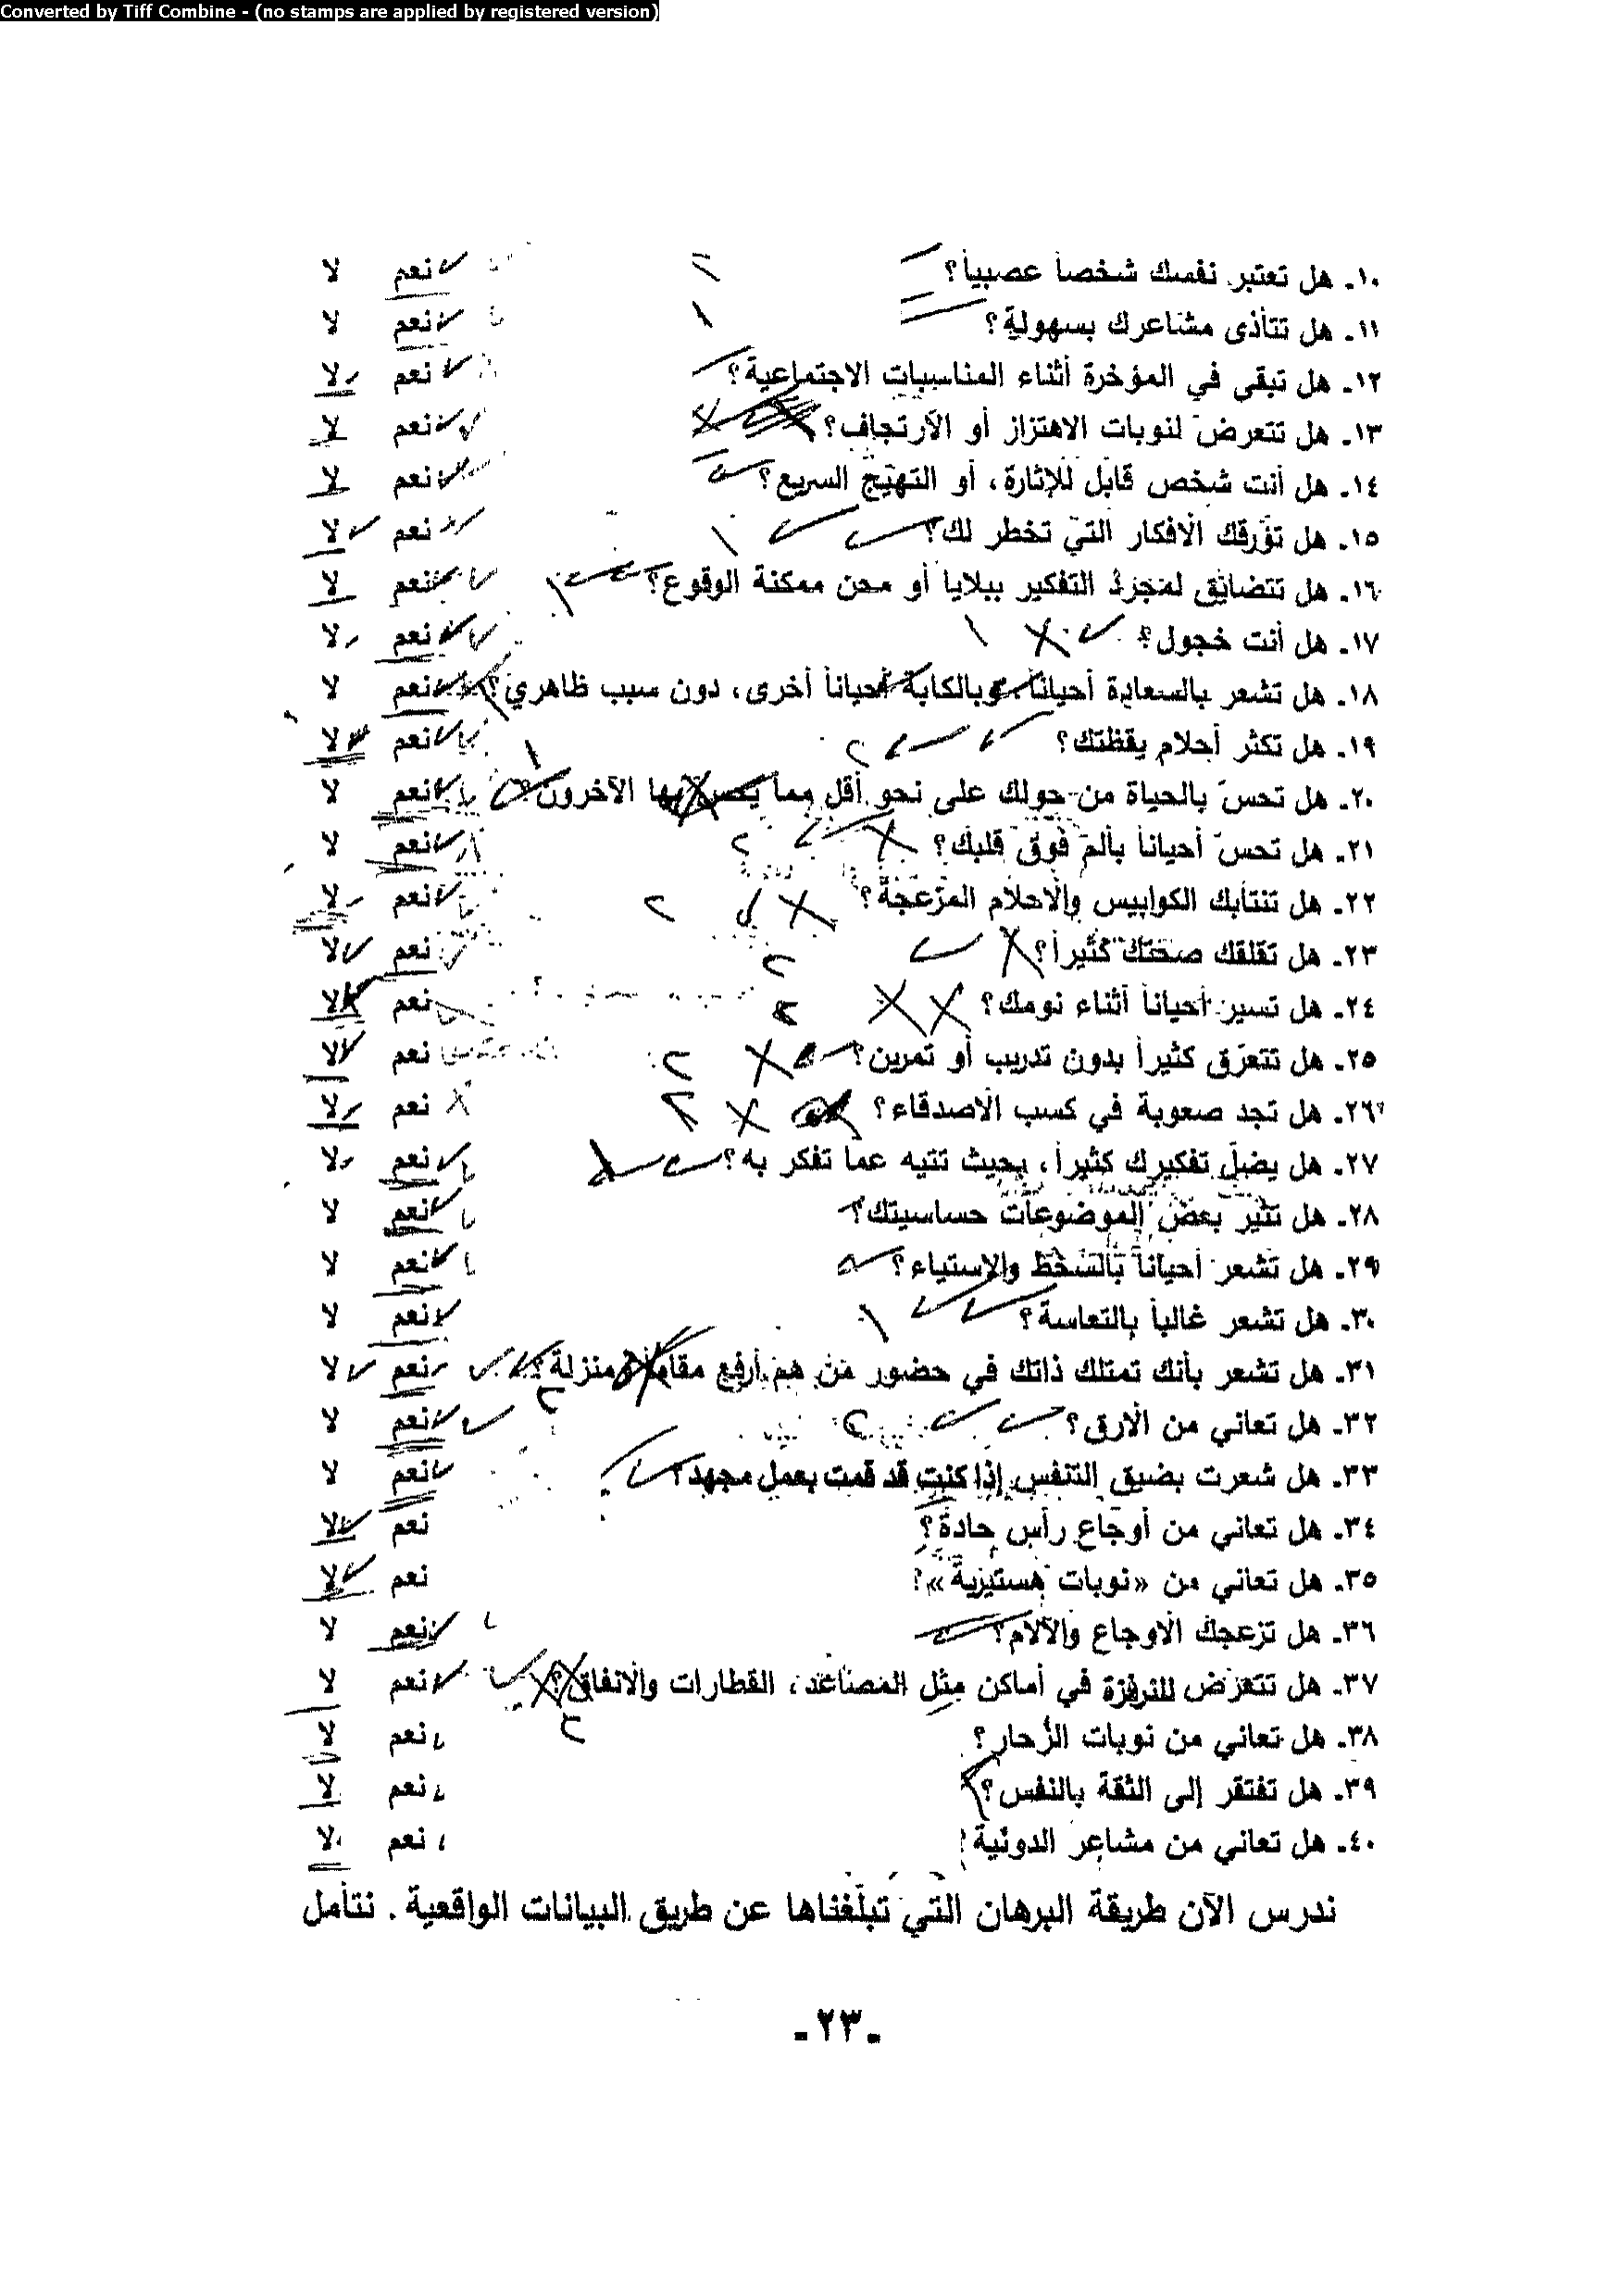 Converted by Tiff Combine - (no stamps are applied by registered version)
١٠. هل تعتبر نفسك شخصاً عصبياً؟ نعم لا
١١. هل تتأذى مشاعرك بسهولة؟ نعم لا
١٢. هل تبقى في المؤخرة أثناء المناسبات الاجتماعية؟ نعم لا
١٣. هل تتعرض لنوبات الاهتزاز أو الارتجاف؟ نعم لا
١٤. هل أنت شخص قابل للإثارة، أو التهيّج السريع؟ نعم لا
١٥. هل تؤرقك الأفكار التي تخطر لك؟ نعم لا
١٦. هل تتضايق لمجرد التفكير ببلايا أو محن ممكنة الوقوع؟ نعم لا
١٧. هل أنت خجول؟ نعم لا
١٨. هل تشعر بالسعادة أحياناً وبالكآبة أحياناً أخرى، دون سبب ظاهري؟ نعم لا
١٩. هل تكثر أحلام يقظتك؟ نعم لا
٢٠. هل تحسّ بالحياة من حولك على نحو أقل مما يحس بها الآخرون؟ نعم لا
٢١. هل تحسّ أحياناً بألم فوق قلبك؟ نعم لا
٢٢. هل تنتابك الكوابيس والأحلام المزعجة؟ نعم لا
٢٣. هل تقلقك صحتك كثيراً؟ نعم لا
٢٤. هل تسير أحياناً أثناء نومك؟ نعم لا
٢٥. هل تتعرّق كثيراً بدون تدريب أو تمرين؟ نعم لا
٢٦. هل تجد صعوبة في كسب الأصدقاء؟ نعم لا
٢٧. هل يضلّ تفكيرك كثيراً، بحيث تتيه عما تفكر به؟ نعم لا
٢٨. هل تثير بعض الموضوعات حساسيتك؟ نعم لا
٢٩. هل تشعر أحياناً بالسخط والاستياء؟ نعم لا
٣٠. هل تشعر غالباً بالتعاسة؟ نعم لا
٣١. هل تشعر بأنك تمتلك ذاتك في حضور من هم أرفع مقاماً ومنزلة؟ نعم لا
٣٢. هل تعاني من الأرق؟ نعم لا
٣٣. هل شعرت بضيق التنفس إذا كنت قد قمت بعمل مجهد؟ نعم لا
٣٤. هل تعاني من أوجاع رأس حادة؟ نعم لا
٣٥. هل تعاني من «نوبات هستيرية»؟ نعم لا
٣٦. هل تزعجك الأوجاع والآلام؟ نعم لا
٣٧. هل تتعرض للنرفزة في أماكن مثل المصاعد، القطارات والأنفاق؟ نعم لا
٣٨. هل تعاني من نوبات الزُحار؟ نعم لا
٣٩. هل تفتقر إلى الثقة بالنفس؟ نعم لا
٤٠. هل تعاني من مشاعر الدونية؟ نعم لا
ندرس الآن طريقة البرهان التي تبلّغناها عن طريق البيانات الواقعية. نتأمل
- ٢٣ -